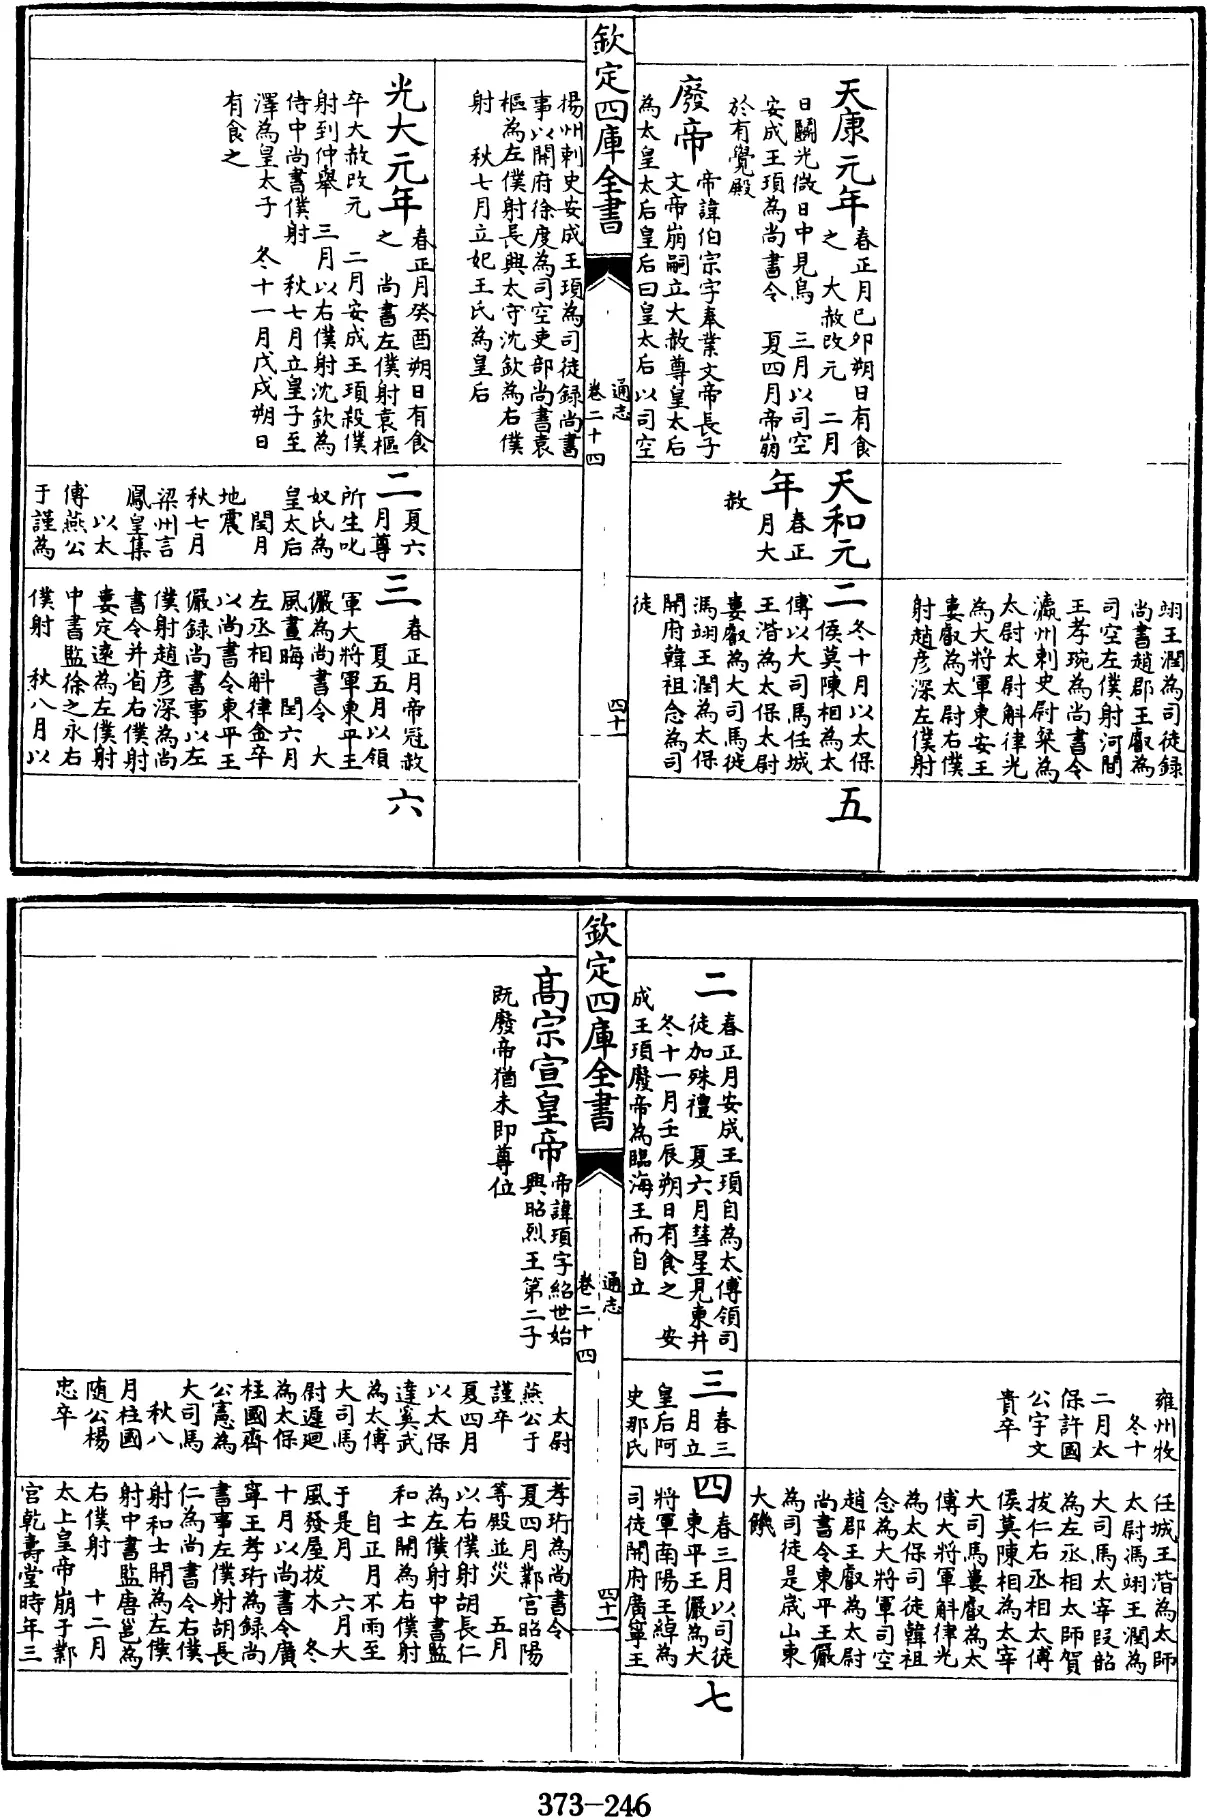 翊王潤為司徒錄
尚書趙郡王叡為
司空左僕射河間
王孝琬為尚書令
瀛州刺史尉粲為
太尉太尉斛律光
為大將軍東安王
婁叡為太尉右僕
射趙彥深左僕射
天康元年
春正月己卯朔日有食
之　大赦改元　二月
日鬬光微日中見烏　三月以司空
安成王頊為尚書令　夏四月帝崩
於有覺殿
廢帝
帝諱伯宗字奉業文帝長子
文帝崩嗣立大赦尊皇太后
為太皇太后皇后曰皇太后以司空
天和元
年
春正
月大
赦
二
冬十月以太保
侯莫陳相為太
傅以大司馬任城
王湝為太保太尉
婁叡為大司馬徙
馮翊王潤為太保
開府韓祖念為司
徒
五
欽定四庫全書
通志
卷二十四
四十
揚州刺史安成王頊為司徒錄尚書
事以開府徐度為司空吏部尚書袁
樞為左僕射長興太守沈欽為右僕
射　秋七月立妃王氏為皇后
光大元年
春正月癸酉朔日有食
之　尚書左僕射袁樞
卒大赦改元　二月安成王頊殺僕
射到仲舉　三月以右僕射沈欽為
侍中尚書僕射　秋七月立皇子至
澤為皇太子　冬十一月戊戌朔日
有食之
二
夏六
月尊
所生叱
奴氏為
皇太后
閏月
地震
秋七月
梁州言
鳳皇集
以太
傅燕公
于謹為
三
春正月帝冠赦
夏五月以領
軍大將軍東平王
儼為尚書令　大
風晝晦　閏六月
左丞相斛律金卒
以尚書令東平王
儼錄尚書事以左
僕射趙彥深為尚
書令并省右僕射
婁定遠為左僕射
中書監徐之永右
僕射　秋八月以
六
雍州牧
冬十
二月太
保許國
公宇文
貴卒
任城王湝為太師
太尉馮翊王潤為
大司馬太宰段韶
為左丞相太師賀
拔仁右丞相太傅
侯莫陳相為太宰
大司馬婁叡為太
傅大將軍斛律光
為太保司徒韓祖
念為大將軍司空
趙郡王叡為太尉
尚書令東平王儼
為司徒是歲山東
大饑
二
春正月安成王頊自為太傅領司
徒加殊禮　夏六月彗星見東井
冬十一月壬辰朔日有食之　安
成王頊廢帝為臨海王而自立
三
春三
月立
皇后阿
史那氏
四
春三月以司徒
東平王儼為大
將軍南陽王綽為
司徒開府廣寧王
七
欽定四庫全書
通志
卷二十四
四十一
高宗宣皇帝
帝諱頊字紹世始
興昭烈王第二子
既廢帝猶未即尊位
太尉
燕公于
謹卒
夏四月
以太保
達奚武
為太傅
大司馬
尉遲迥
為太保
柱國齊
公憲為
大司馬
秋八
月柱國
隨公楊
忠卒
孝珩為尚書令
夏四月鄴宮昭陽
等殿並災　五月
以右僕射胡長仁
為左僕射中書監
和士開為右僕射
自正月不雨至
于是月　六月大
風發屋拔木　冬
十月以尚書令廣
寧王孝珩為錄尚
書事左僕射胡長
仁為尚書令右僕
射和士開為左僕
射中書監唐邕為
右僕射　十二月
太上皇帝崩于鄴
宮乾壽堂時年三
373-246